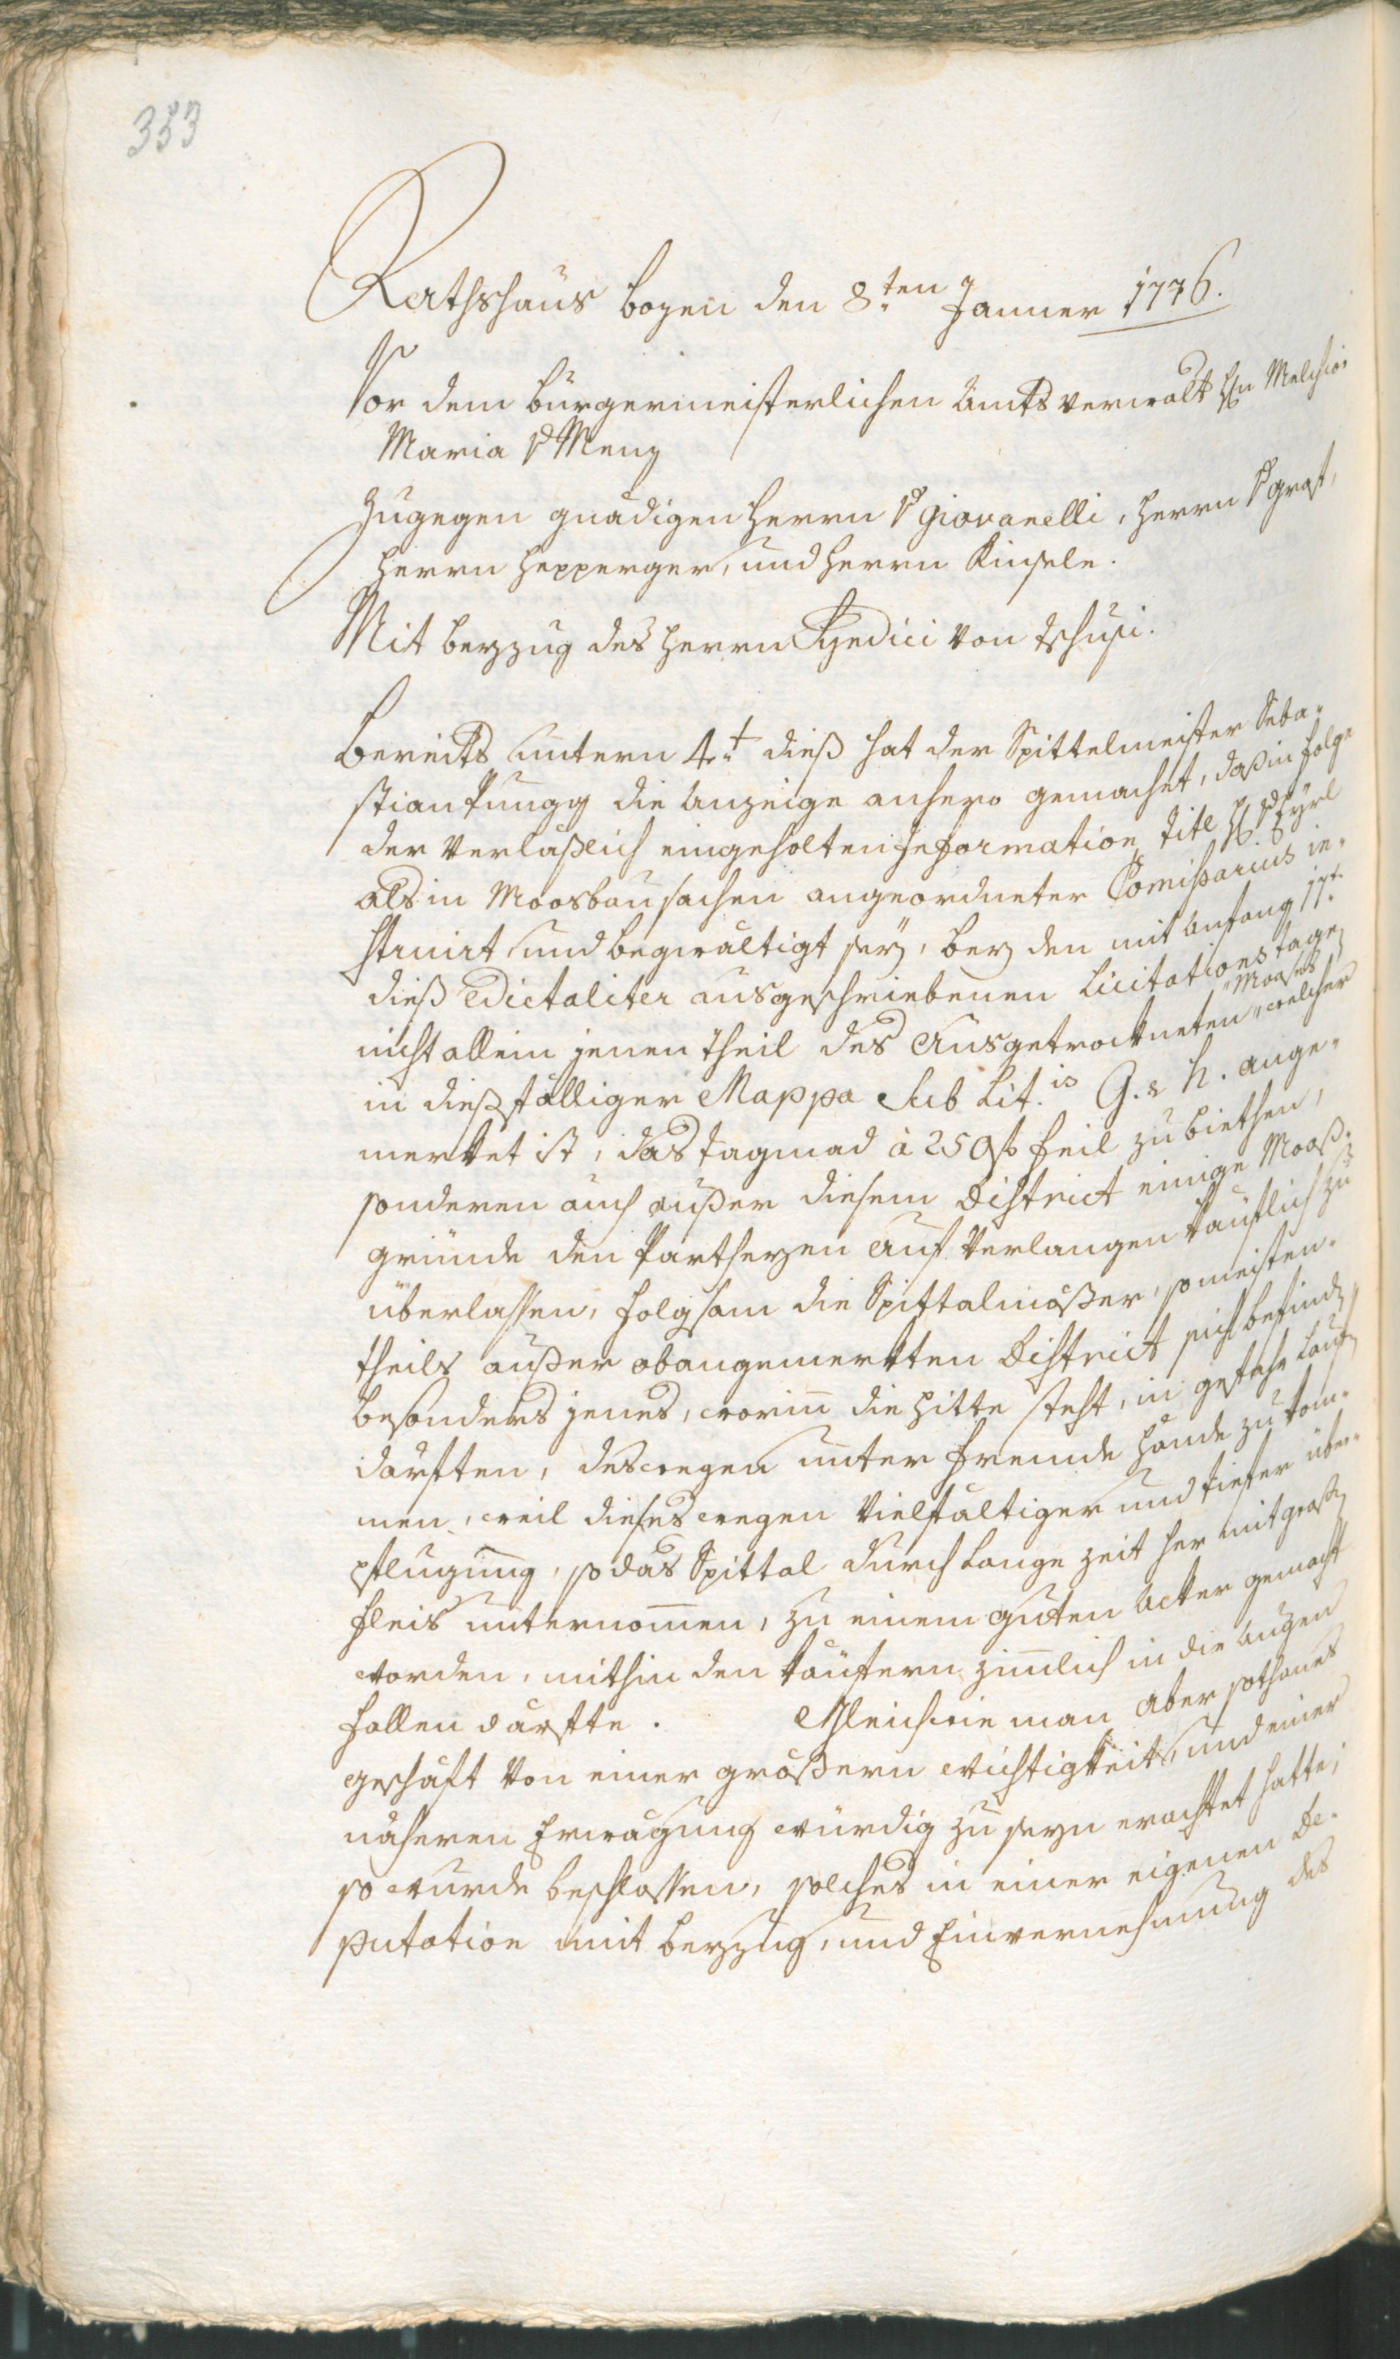 353
Rathshaus bozen den 8.ten Janner 1776.
Vor dem burgermeisterlichen Amtsverwalt h̃n Melchior
Maria v Menz
Zugegen gnädigen herrn v Giovanelli, herrn v grast,
herrn hepperger, und herrn Kinsele.
Mit beyzug des herrn Syndici von tschusi.
bereits untern 4.t dieß hat der Spittelmeister Seba-
stian Pungg die Anzeige anhero gemachet, daß in folge
der verlaßlich eingeholten Information Titl H v Eyrl
als in Moosbausachen angeordneter Comissarius in-
struirt und begewältigt sey, bey den mit Anfang 17.t
dieß edictaliter ausgeschriebenen Licitationstagen
nicht allein jenen theil des Ausgetrockneten Mooses welcher
in dießfälliger Mappa Sub Lit.is G. & h. ange-
merket ist, das tagmad à 250 f feil zu biethen,
sonderen auch außer diesem District einige Mooß-
gründe den Partheyen auf Verlangen käuflich zu
überlassen, folgsam die Spittalmößer, so meisten-
theils außer obangemerkten District sich befinden
besonders jenes, worinn die hitte steht, in gefahr laufen
darften, deswegen unter fremde hände zu kom-
men, weil dieses wegen vielfältiger und tiefer über-
pflugung, so das Spittal durch lange zeit her mit großen
fleis unternommen, zu einem guten Acker gemacht
worden, mithin den käufern zimlich in die Augen
fallen darfte. Gleichwie man aber sothanes
geschäft von einer größern wichtigkeit, und einer
näheren Erwägung würdig zu seyn erachtet hatte,
so wurde beschlossen, solches in einer eigenen De-
putation mit beyzug, und Einvernehmung des